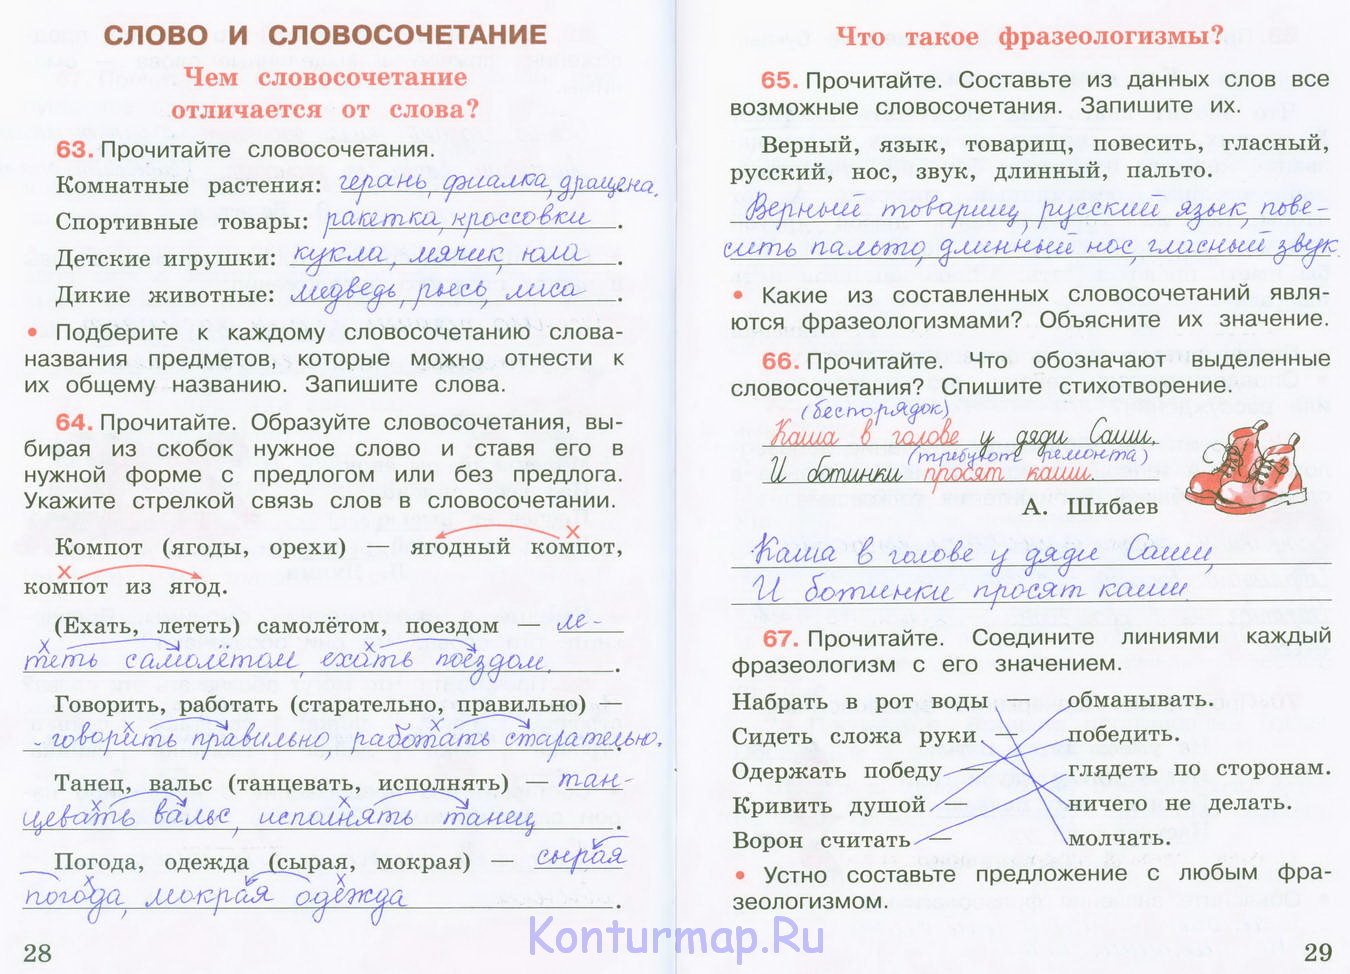 СЛОВО И СЛОВОСОЧЕТАНИЕ
Чем словосочетание
отличается от слова?
63. Прочитайте словосочетания.
Комнатные растения: герань, фиалка, драцена.
Спортивные товары: ракетка, кроссовки.
Детские игрушки: кукла, мячик, юла.
Дикие животные: медведь, рысь, лиса.
• Подберите к каждому словосочетанию слова-
названия предметов, которые можно отнести к
их общему названию. Запишите слова.
64. Прочитайте. Образуйте словосочетания, вы-
бирая из скобок нужное слово и ставя его в
нужной форме с предлогом или без предлога.
Укажите стрелкой связь слов в словосочетании.
х
Компот (ягоды, орехи) — ягодный компот,
х
компот из ягод.
(Ехать, лететь) самолётом, поездом — ле-
х х
теть самолётом, ехать поездом.
Говорить, работать (старательно, правильно) —
х х
говорить правильно, работать старательно.
Танец, вальс (танцевать, исполнять) — тан-
х х
цевать вальс, исполнять танец.
Погода, одежда (сырая, мокрая) — сырая
х х
погода, мокрая одежда.
28
Что такое фразеологизмы?
65. Прочитайте. Составьте из данных слов все
возможные словосочетания. Запишите их.
Верный, язык, товарищ, повесить, гласный,
русский, нос, звук, длинный, пальто.
Верный товарищ, русский язык, пове-
сить пальто, длинный нос, гласный звук.
• Какие из составленных словосочетаний явля-
ются фразеологизмами? Объясните их значение.
66. Прочитайте. Что обозначают выделенные
словосочетания? Спишите стихотворение.
(беспорядок)
Каша в голове у дяди Саши,
(требуют ремонта)
И ботинки просят каши.
А. Шибаев
Каша в голове у дяди Саши,
И ботинки просят каши
67. Прочитайте. Соедините линиями каждый
фразеологизм с его значением.
Набрать в рот воды — обманывать.
Сидеть сложа руки — победить.
Одержать победу — глядеть по сторонам.
Кривить душой — ничего не делать.
Ворон считать — молчать.
• Устно составьте предложение с любым фра-
зеологизмом.
29
Konturmap.Ru